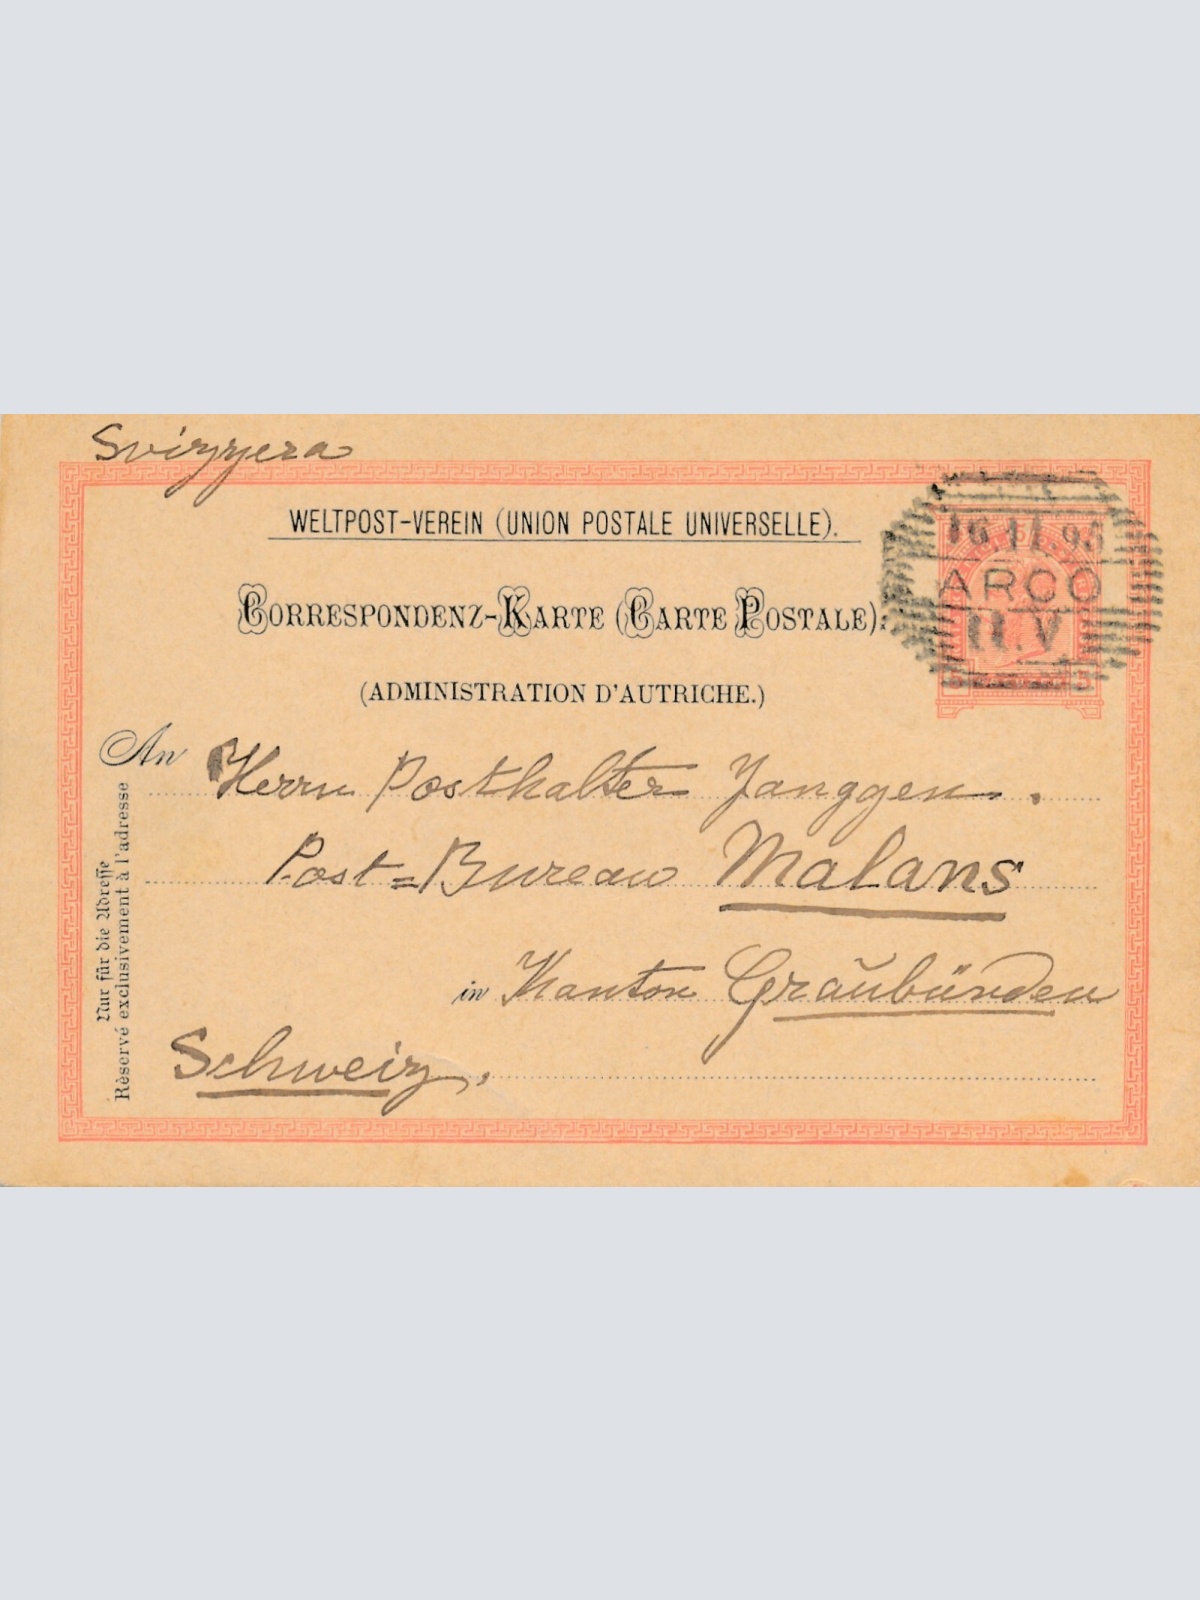 Svizzera
WELTPOST-VEREIN (UNION POSTALE UNIVERSELLE).
CORRESPONDENZ-KARTE (CARTE POSTALE).
(ADMINISTRATION D'AUTRICHE.)
16.11.95
ARCO
11.V
An Herrn Posthalter Janggen.
Post=Bureau Malans
in Kanton Graŭbünden
Schweiz.
Nur für die Adresse
Réservé exclusivement à l'adresse